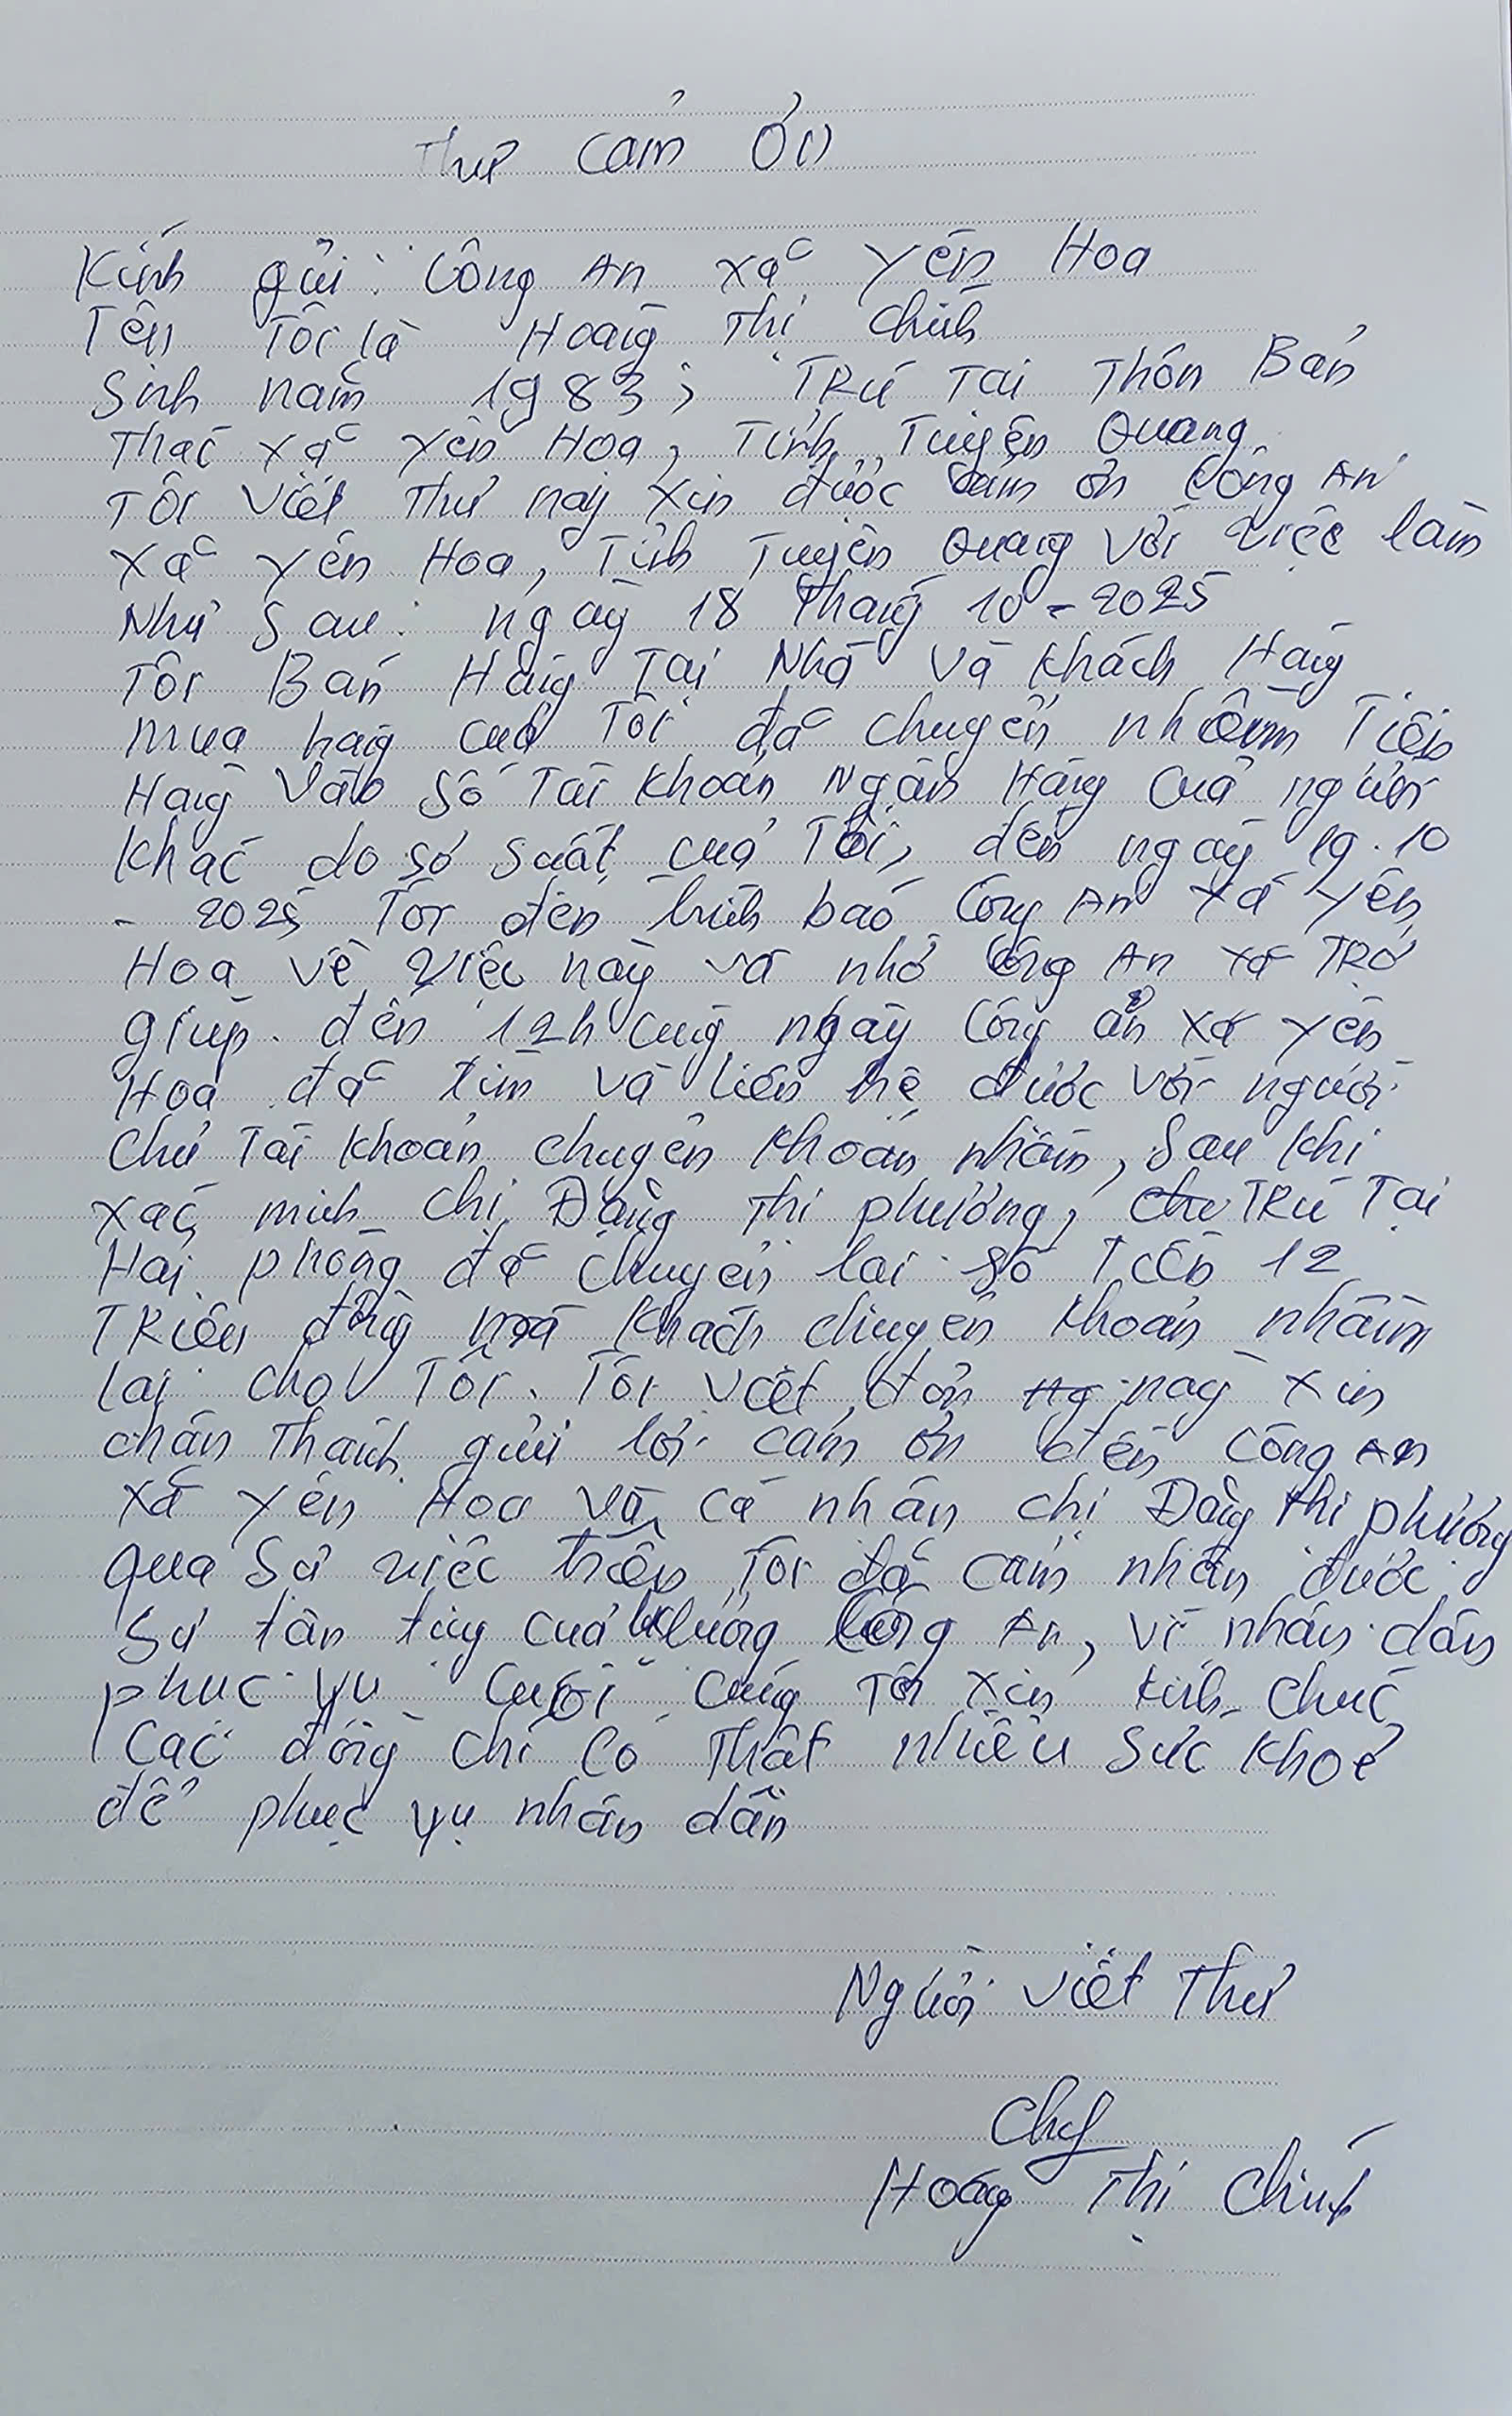 Thư cảm ơn
Kính gửi: Công An xã Yên Hoa
Tên Tôi là Hoàng Thị Chính
Sinh năm 1983; TRú Tại Thôn Bản
Thác xã Yên Hoa, Tỉnh Tuyên Quang.
Tôi viết Thư này xin được cảm ơn Công An
xã Yên Hoa, Tỉnh Tuyên Quang với việc làm
Như Sau: ngày 18 Tháng 10 - 2025
Tôi Bán Hàng Tại Nhà và khách Hàng
mua hàng của Tôi đã chuyển nhầm Tiền
Hàng vào số Tài khoản Ngân Hàng của người
khác do sơ suất của Tôi, đến ngày 19.10
- 2025 Tôi đến trình báo Công An xã Yên
Hoa về việc này và nhờ Công An xã TRỢ
giúp. đến 12h cùng ngày Công an xã Yên
Hoa đã tìm và liên hệ được với người
Chủ Tài khoản chuyển khoản nhầm, Sau khi
xác minh chị Đặng Thị phương, TRú Tại
Hải phòng đã chuyển lại số Tiền 12
TRiệu đồng mà khách chuyển khoản nhầm
lại cho Tôi. Tôi viết đơn này xin
chân Thành gửi lời cảm ơn đến Công An
xã Yên Hoa và cá nhân chị Đặng Thị phương
qua Sự việc trên Tôi đã cảm nhận được
Sự tận tụy của lực lượng Công An, vì nhân dân
phục vụ Cuối cùng Tôi xin kính chúc
Các đồng chí Có Thật nhiều Sức khoẻ
để phục vụ nhân dân
Người viết Thư
Hoàng Thị Chính